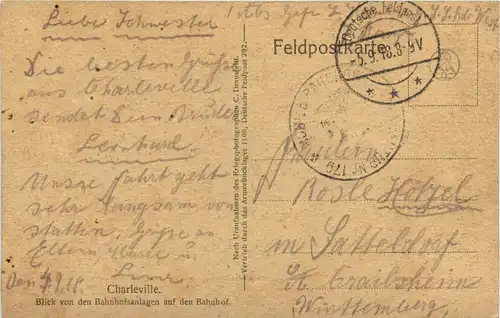 Liebe Schwester
Die besten Grüße
aus Charleville
sendet Dein Bruder
Leonhard.
Unsre Fahrt geht
sehr langsam von
statten, Grüße an
Eltern
Den 4.9.18.
Charleville.
Blick von den Bahnhofsanlagen auf den Bahnhof.
Nach Uraufnahmen des Kriegsphotographen C.
Vertrieb durch das Armeebüchlager (100, Deutsche Feldpost 292.
Feldpostkarte
Deutsche Feldpost
-5.9.18.8-9V
Fräulein
Rosle Hetzel
in Satteldorf
Crailsheim
Württemberg.